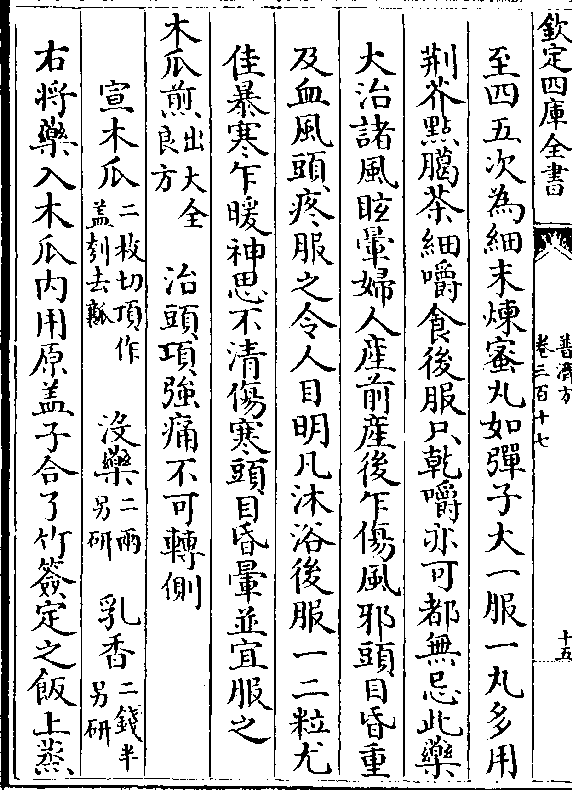 欽定四庫全書
普濟方
卷三百十七
十五
至四五次為細末煉蜜丸如彈子大一服一丸多用
荆芥點臈茶細嚼食後服只乾嚼亦可都無忌此藥
大治諸風眩暈婦人産前産後乍傷風邪頭目昏重
及血風頭疼服之令人目明凡沐浴後服一二粒尤
佳暴寒乍暖神思不清傷寒頭目昏暈並宜服之
木瓜煎出大全良方 治頭項強痛不可轉側
宣木瓜二枚切頂作盖刳去瓤 沒藥二兩另研 乳香二錢半另研
右將藥入木瓜内用原盖子合了竹簽定之飯上蒸